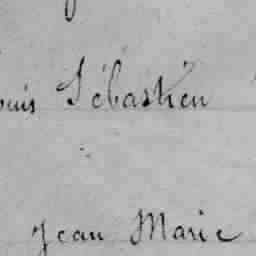 ouis Sébastien
Jean Marie